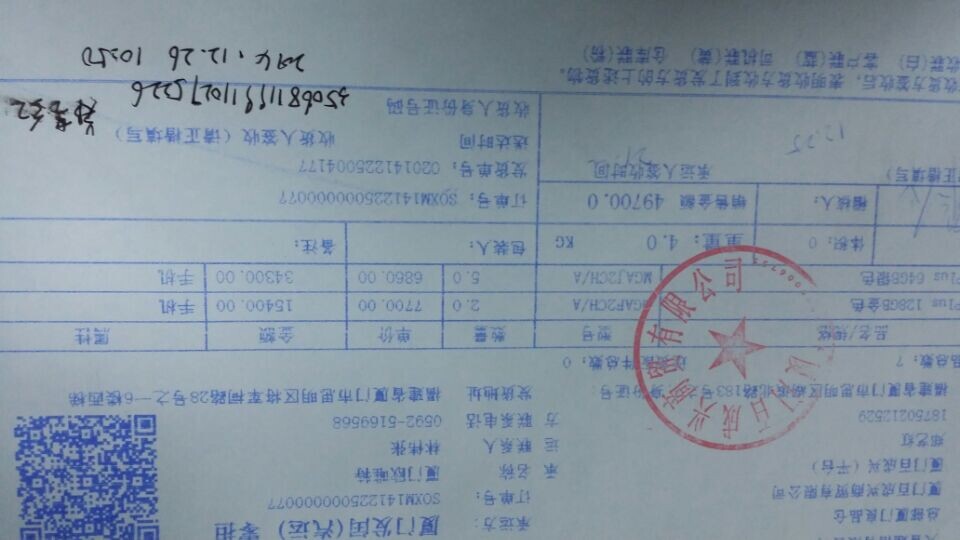 厦门发闽(汽运) 零担
承运方:
总部厦门良品仓
订单号: SOXM141225000000077
厦门百成兴商贸有限公司
承 名称 厦门欧唯特
厦门百成兴(平台)
联系人 林伟张
运
郑艺红
联系电话 0592-5169568
方
18750212529
发货地址 福建省厦门市思明区将军祠路28号之一6一楼西梯
福建省厦门市思明区湖滨北路183号之 身份证号:
品总数: 7
件总数: 0
品名/规格 型号 数量 单价 金额 属性
Plus 128GB金色 MGAF2CH/A 2.0 7700.00 15400.00 手机
Plus 64GB银色 MGAJ2CH/A 5.0 6860.00 34300.00 手机
体积: 0 重量: 4.0 KG 包装人: 备注:
稽核人: 销售金额 49700.0
订单号: SOXM141225000000077
发货单号: 020141225004177
承运人签收时间
正楷填写)
12.25
送达时间
收货人签收 (请正楷填写)
收货人身份证号码
350681199110275226
收货方签收后,表明收货方收到了发货方的上述货物。
收联(白) 客户联(蓝) 司机联(黄) 仓库联(粉)
2014.12.26 10:50
门百成兴商贸有限公司